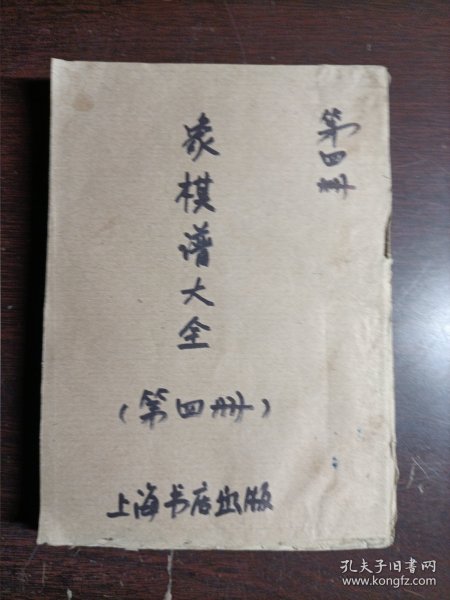 第四册
象棋谱大全
（第四册）
上海书店出版
孔夫子旧书网
www.kongfz.com